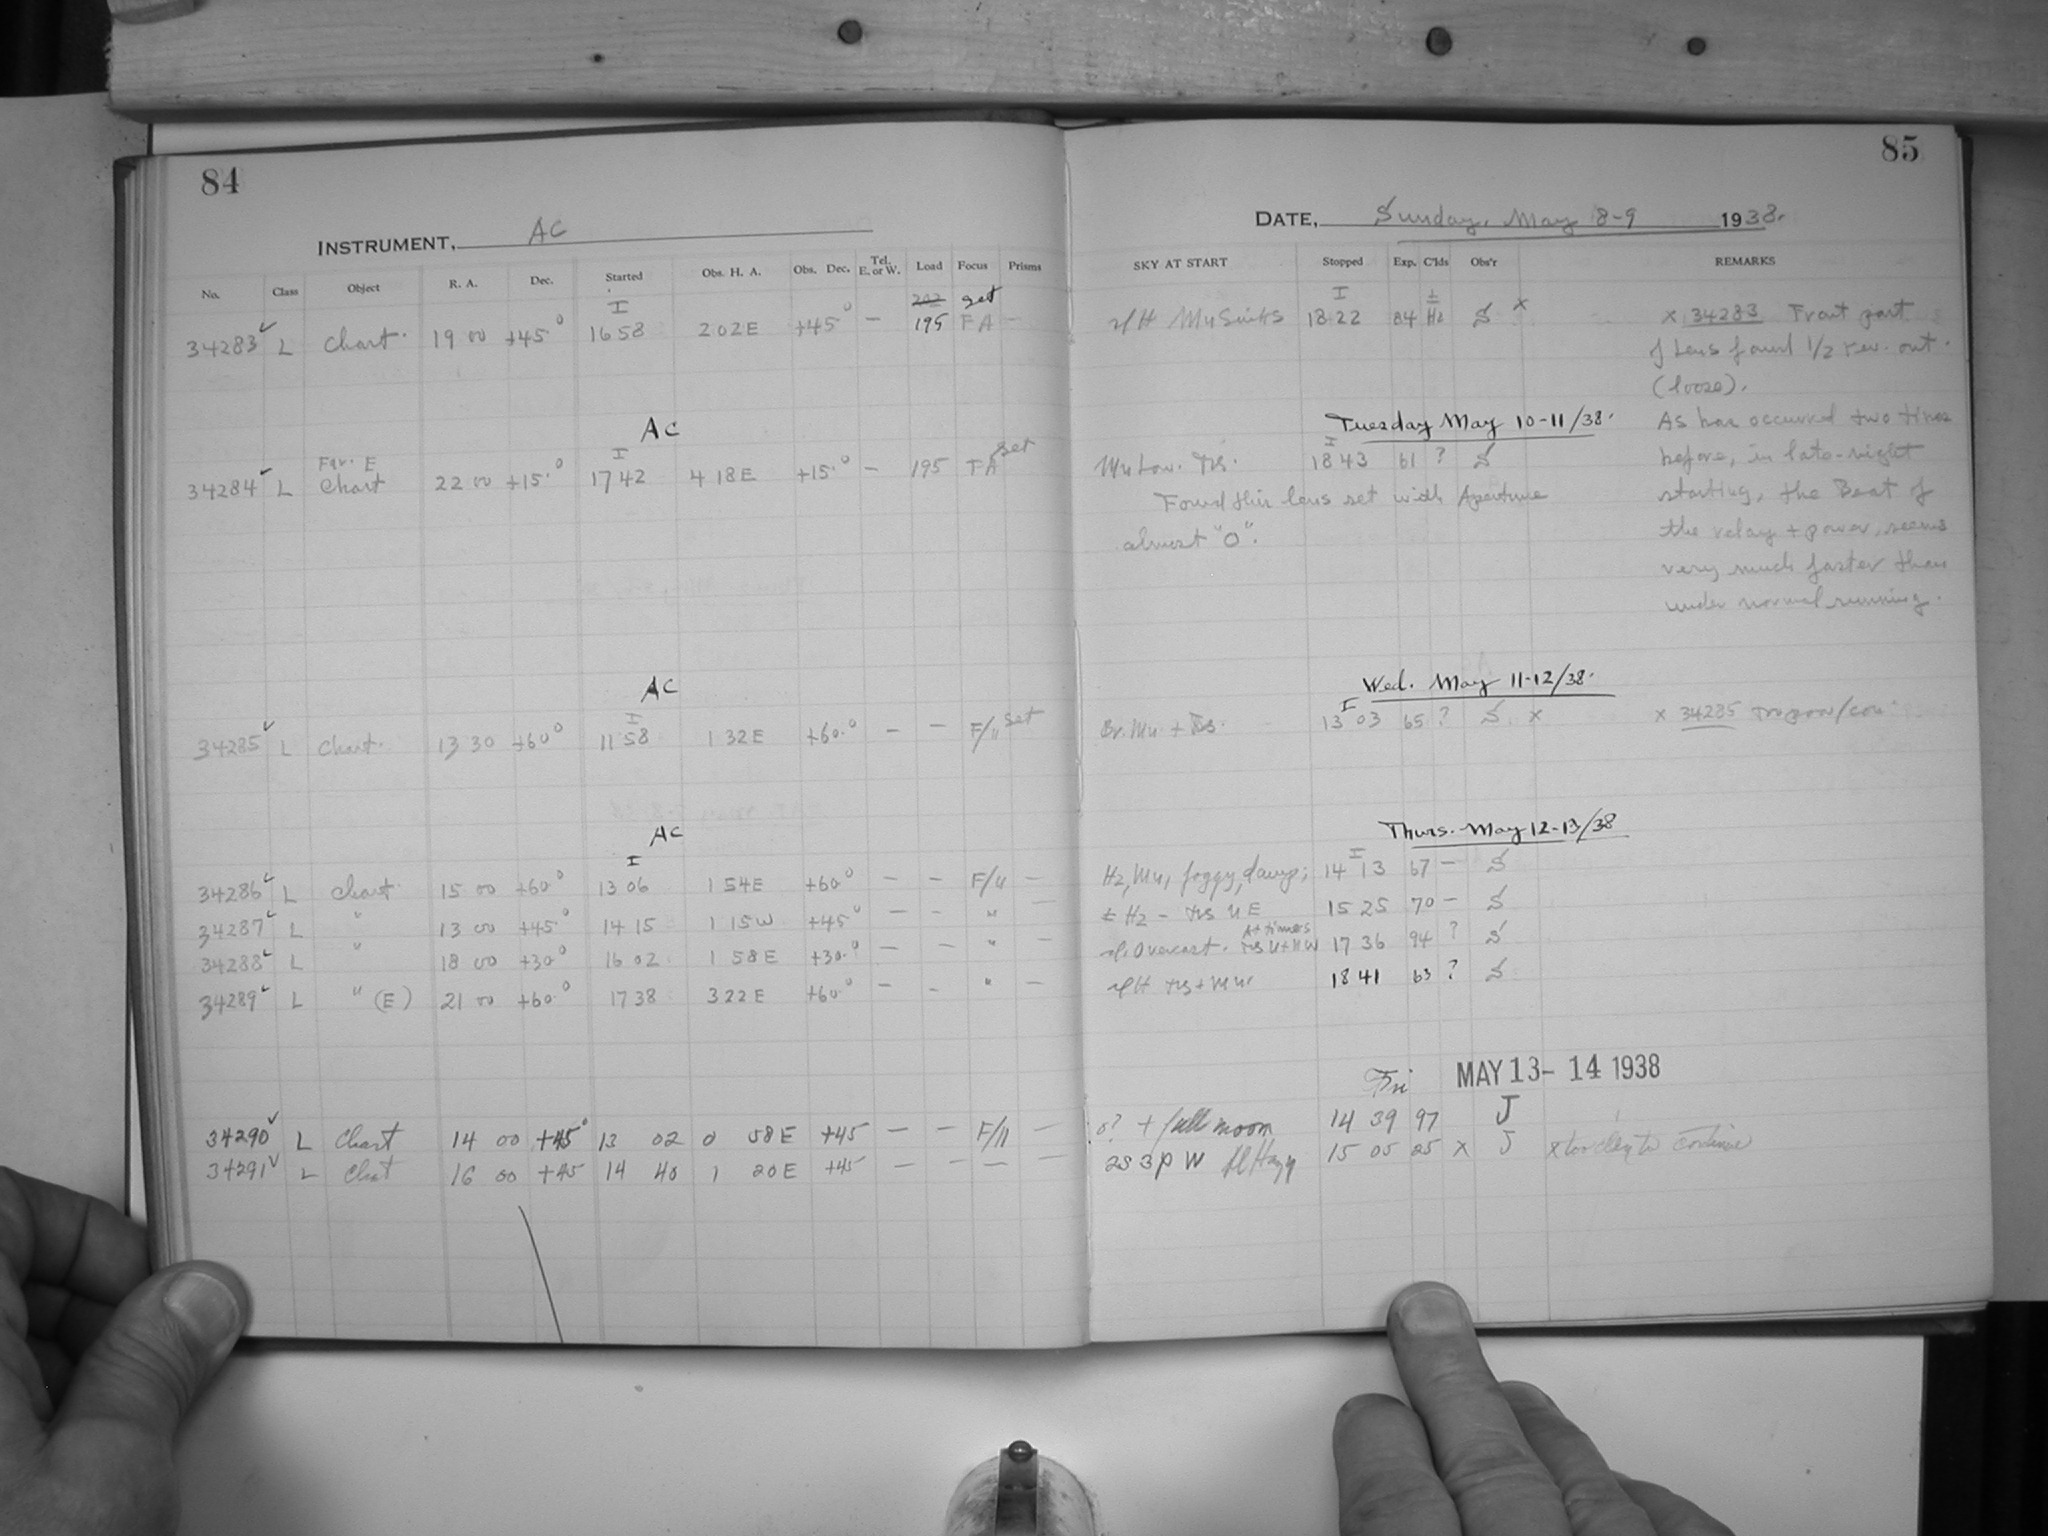 84
INSTRUMENT, AC
No. Class Object R. A. Dec. Started Obs. H. A. Obs. Dec. Tel. E. or W. Load Focus Prisms
34283 ✓ L Chart. 19 00 +45° I 16 58 2 02 E +45° — 202 195 set FA —
AC
34284 ✓ L Far. E Chart 22 00 +15.° I 17 42 4 18 E +15.° — 195 FA set
AC
34285 ✓ L Chart. 13 30 +60° I 11 58 1 32 E +60.° — — F/11 set
AC
34286 ✓ L Chart. 15 00 +60° I 13 06 1 54 E +60° — — F/11 —
34287 ✓ L " 13 00 +45.° 14 15 1 15 W +45° — - " —
34288 ✓ L " 18 00 +30° 16 02 1 58 E +30.° — — " —
34289 ✓ L " (E) 21 00 +60.° 17 38 3 22 E +60° — - " —
34290 ✓ L Chart 14 00 +45° 13 02 0 58 E +45 — — F/11 —
34291 ✓ L Chat 16 00 +45 14 40 1 20 E +45 — — — —
85
DATE, Sunday, May 8-9 1938.
SKY AT START Stopped Exp. C'lds Obs'r REMARKS
I 18 22 84 ± Hz S x x 34283 Front part
of Lens found 1/2 rev. out.
(loose).
Tuesday May 10-11/38. As has occurred two times
Mu Low. I 18 43 61 ? S before, in late-night
Found this lens set with Aperture starting, the Beat of
almost "O". the relay + power, seems
very much faster than
under normal running.
Wed. May 11-12/38.
Br. Mu. + I 13 03 65 ? S x x 34285
Thurs. May 12-13/38
Hz, Mu, foggy, damp; I 14 13 67 — S
± Hz - N E 15 25 70 — S
Overcast. At times 17 36 94 ? S
18 41 63 ? S
Fri MAY 13-14 1938
o? + full moon 14 39 97 J
2s 3p W Hazy 15 05 25 x J x too cldy to continue